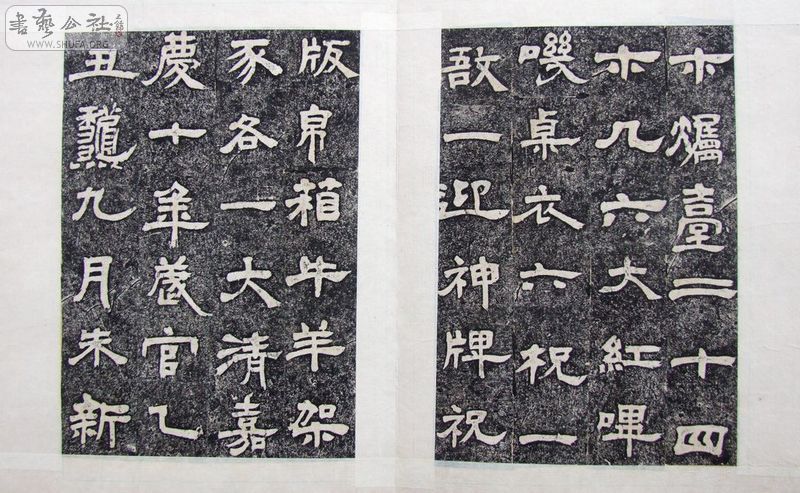 書藝公社
WWW.SHUFA.ORG
木燭臺二十四
木几六大紅嗶
嘰桌衣六柷一
敔一迎神牌祝
版帛箱牛羊架
豕各一大清嘉
慶十年歲官乙
丑龝九月朱新